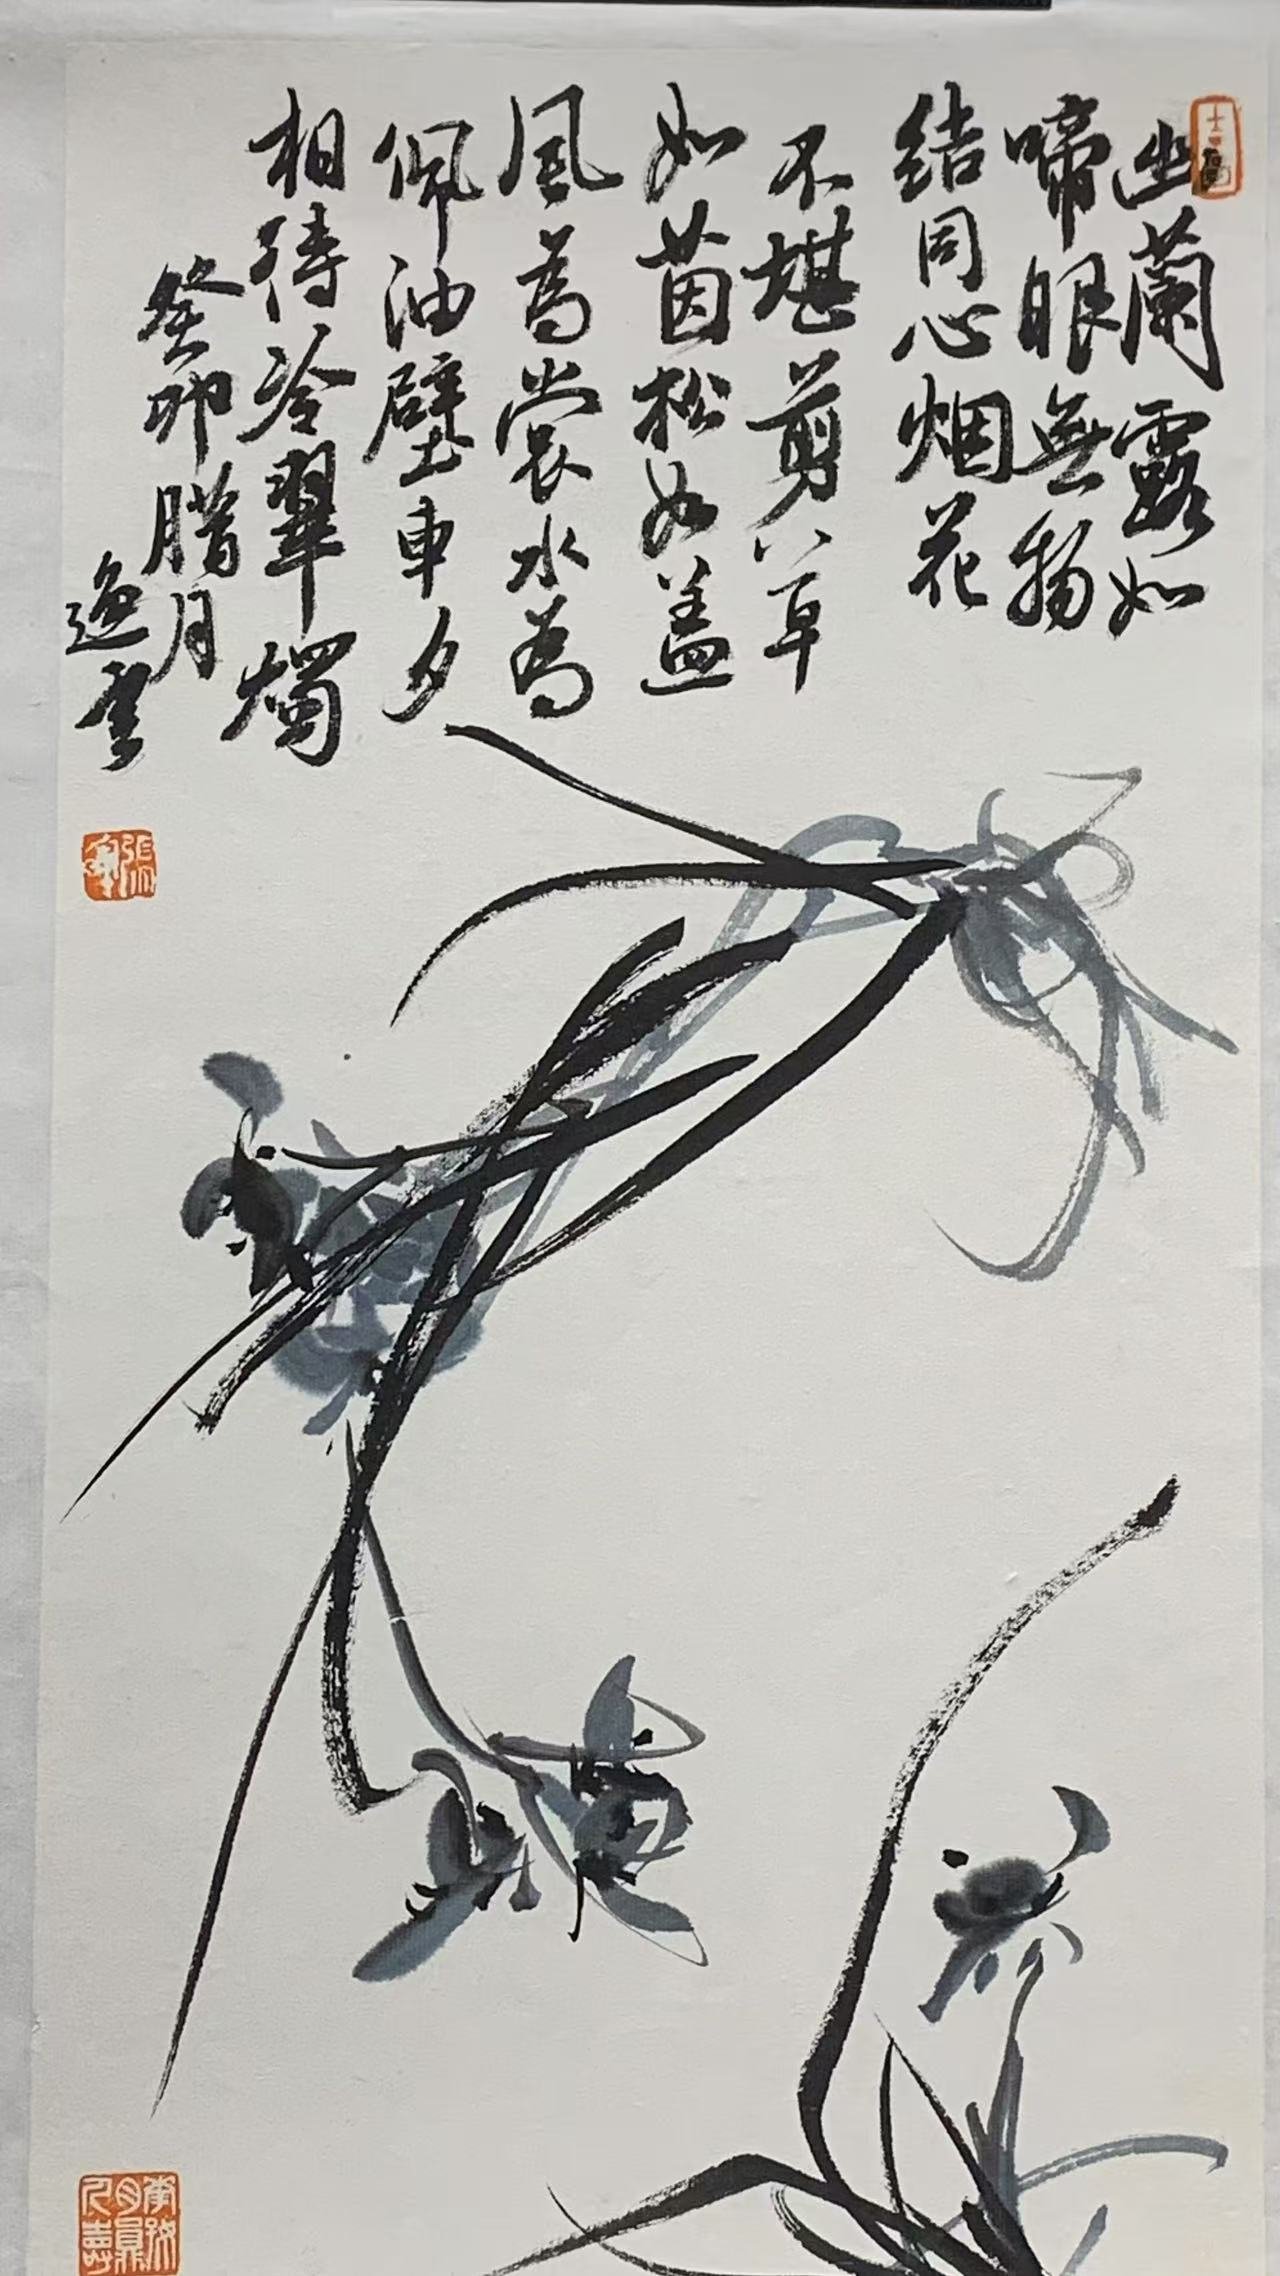 幽蘭露如
啼眼無物
结同心烟花
不堪剪草
如茵松如盖
風為裳水為
佩油壁車夕
相待冷翠燭
癸卯腊月
逸雲